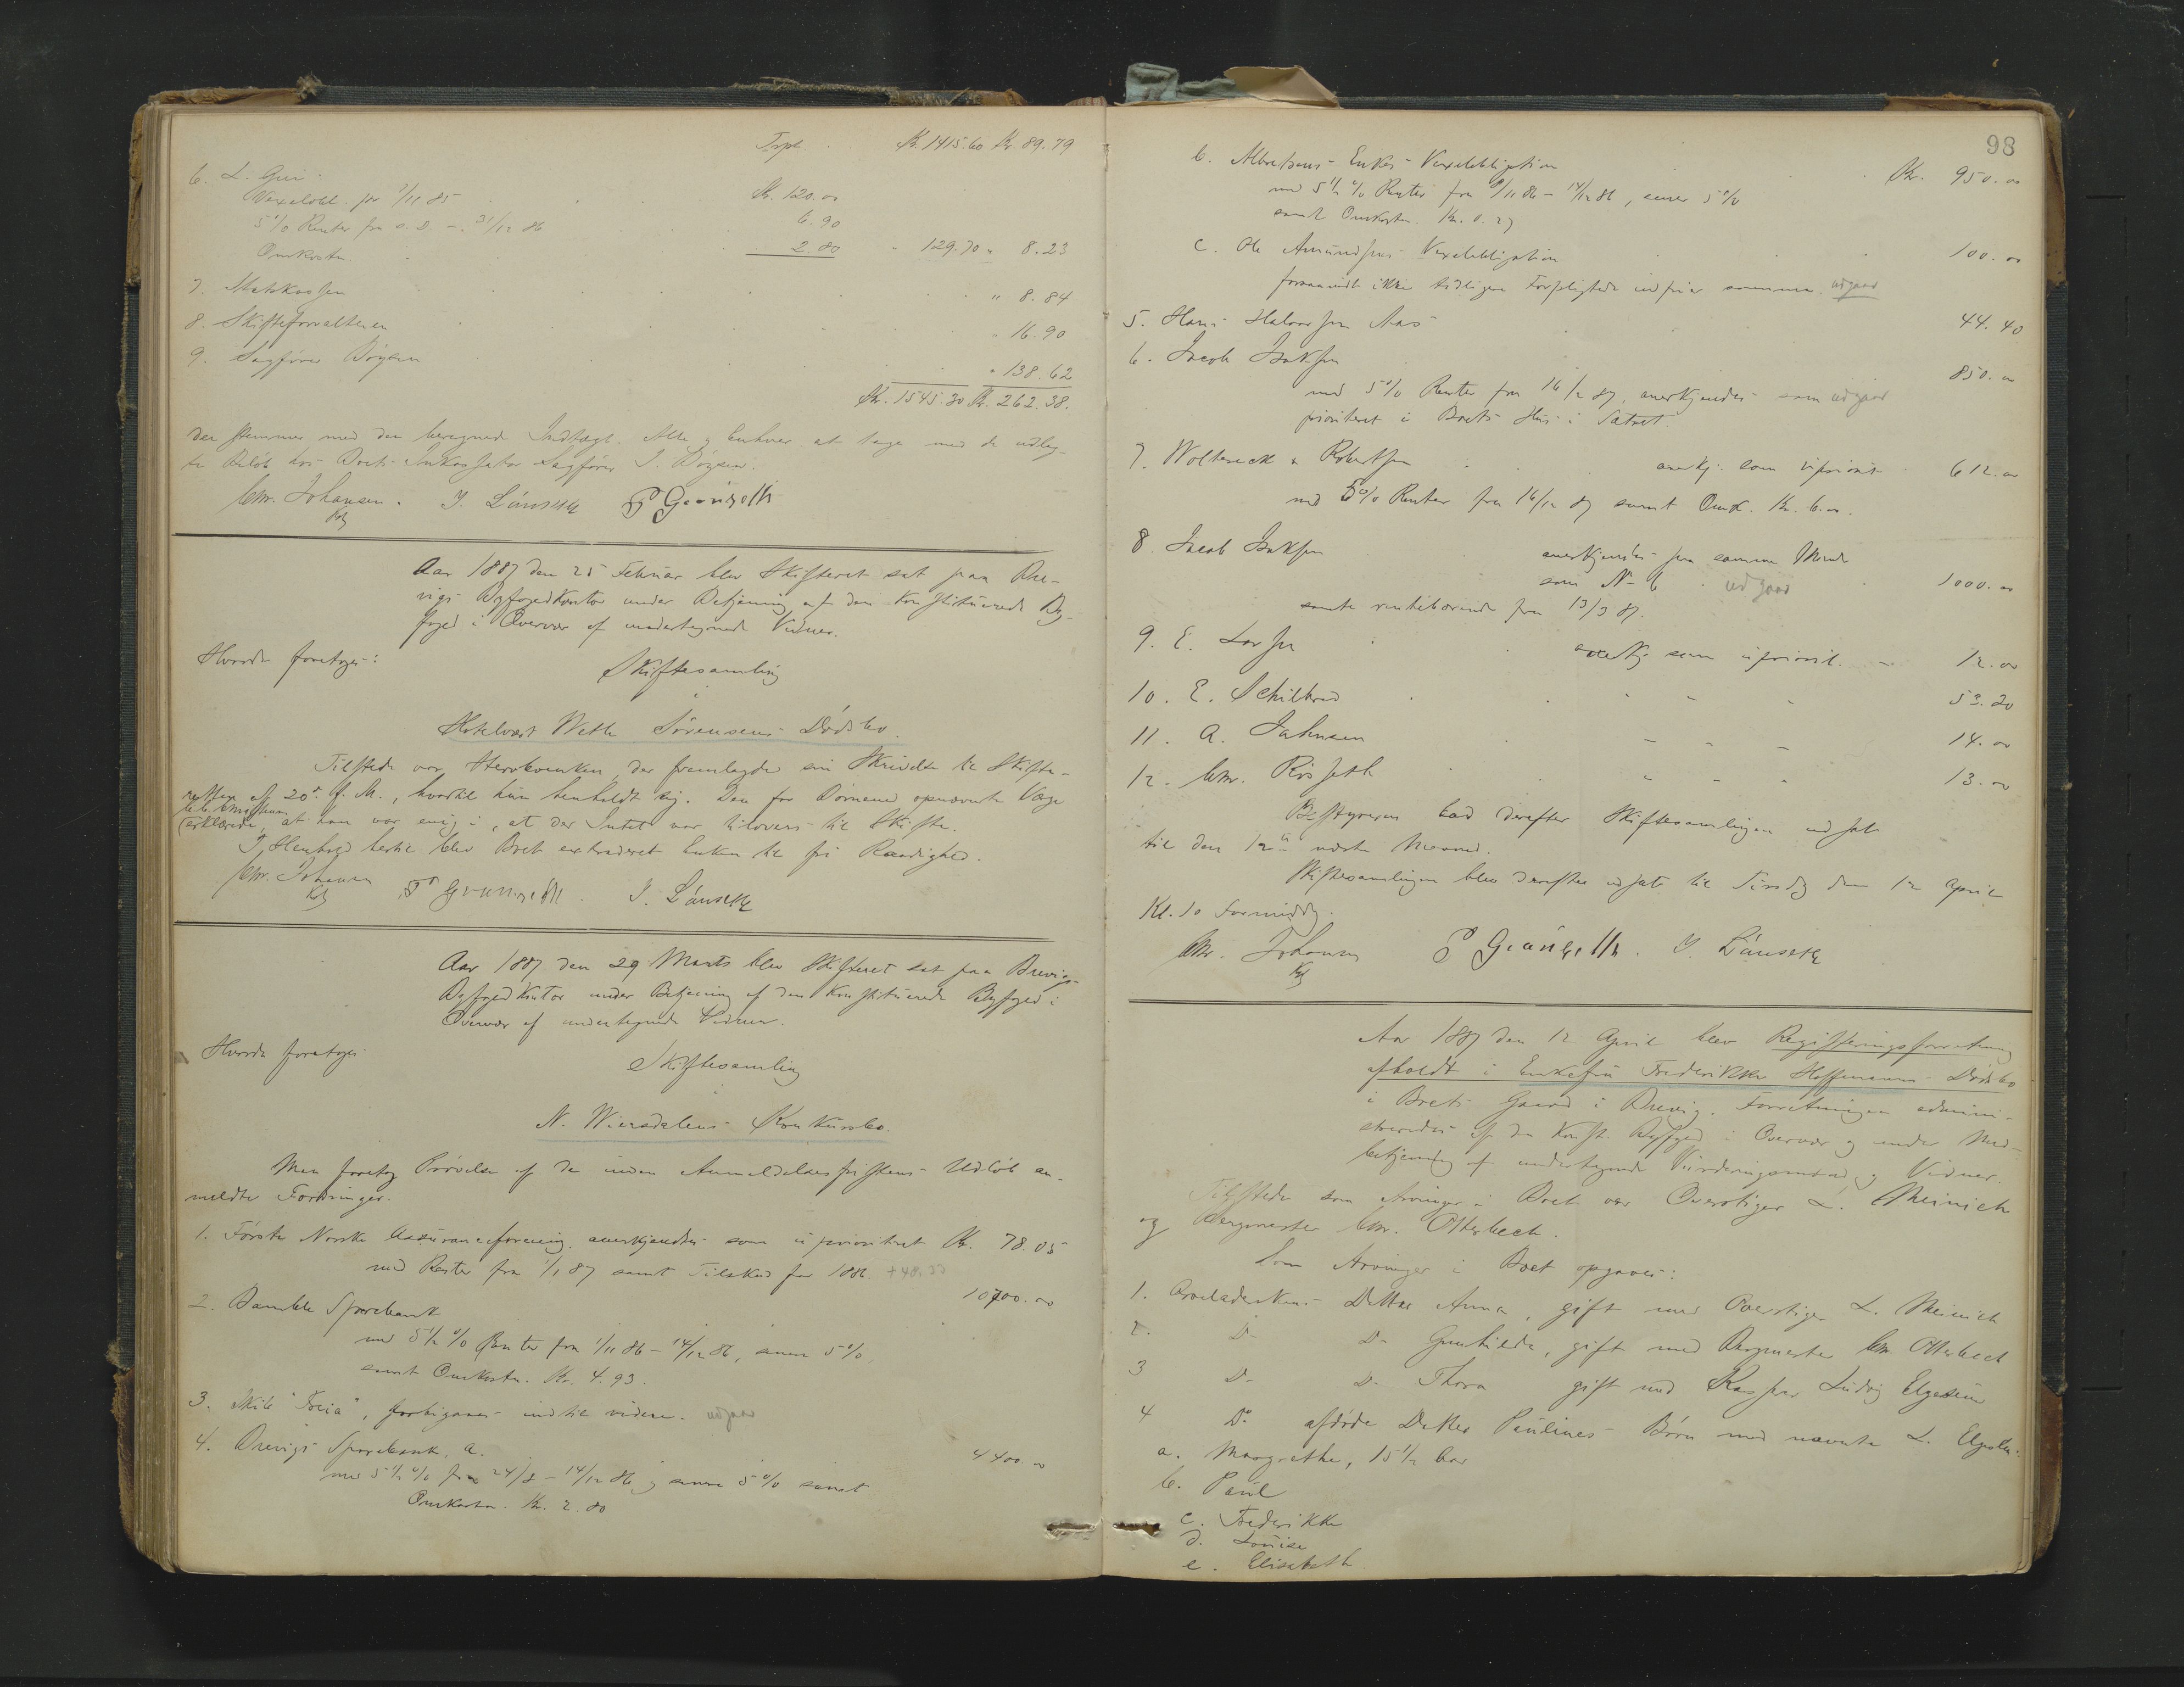 Trspt. Kr. 1415.60 Kr. 89.79
6. L. Grei.
Vexelobl. fra 1/11 85 Kr. 120.00
5 % Renter fra s. D. - 31/12 86 6.90
Omkostn. 2.80 " 129.70 " 8.23
7. Skatskassen " 8.84
8. Skifteforvalteren " 16.90
9. Sagfører Bøysen " 138.62
Kr. 1545.30 Kr. 262.38.
der stemmer med den beregnede Indtægt. Alle og Enhver at tage med de udlag-
te Beløb hos Boets Inkassator Sagfører J. Bøysen.
Chr. Johansen. J. Lánseth P Grönseth
Kst
Aar 1887 den 25 Februar blev Skifteret sat paa Bre-
vigs Byfogedkontor under Betjening af den konstituerede By-
foged i Overvær af undertegnede Vidner.
Hvorda foretoges:
Skiftesamling
i
Hotelvært Wetle Sørensens Dødsbo.
Tilstede var Stervboenken, der fremlagde sin Skrivelse til Skifte-
retten af 20de f. M., hvortil hun henholdt sig. Den for Børnene opnævnte Verge
erklærede, at han var enig i, at der Intet var tilovers til Skifte.
I Henhold hertil blev Boet extraderet Enken til fri Raadighed.
Chr. Johansen P Grönseth. J. Lánseth
Kst
Aar 1887 den 29 Marts blev Skifteret sat paa Brevigs
Byfogedkontor under Betjening af den konstituerede Byfoged i
Overvær af undertegnede Vidner.
Hvorda foretoges:
Skiftesamling
i
N. Wiersdalens Konkursbo.
Man foretog Prøvelse af de inden Anmeldelsesfristens Udløb an-
meldte Fordringer.
1. Første Norske Assuranceforening. anerkjendtes som uprioriteret Kr. 78.05
med Renter fra 1/1 87 samt Tilskud for 1886. + 48.33
2. Bamble Sparebank 10700.00
med 5 1/2 % Renter fra 1/11 86 - 14/12 86, senere 5 %,
samt Omkostn. Kr. 4.93.
3. Skib "Freia", forbigaaes indtil videre. udgaar
4. Brevigs Sparebank, a. 4400.00
med 5 1/2 % fra 24/8 - 14/12 86 og senere 5 % samt
Omkostn. Kr. 2.80
98
b. Albretsens Enkes Vexelobligation Kr. 950.00
med 5 1/2 % Renter fra 8/11 86 - 14/12 86, senere 5 %
samt Omkostn. Kr. 0.27
c. Ole Amundsens Vexelobligation 100.00
forsaavidt ikke tidligere Forpligtede indfrier samme. udgaar
5. Hans Halvorsen Aas 44.40
6. Jacob Isaksen 850.00
med 5 % Renter fra 16/2 87, anerkjendes som udgaar
prioriteret i Boets Hus i Sætret
7. Woltereck & Robertsen anerkj. som uprioriteret 612.00
med 5 % Renter fra 16/12 87 samt Omk. Kr. 6.00.
8. Jacob Isaksen anerkjendtes paa samme Maade
som No 6 udgaar 1000.00
samt rentebærende fra 13/3 87.
9. E. Larsen anerkj. som upriorit. - 12.00
10. E. Schilbred - - - 53.20
11. A. Jahnsen - - - 14.00
12. Chr. Risseth - - - 13.00
Bestyreren bad derefter Skiftesamlingen udsat
til den 12te næste Maaned.
Skiftesamlingen blev derefter udsat til Tirsdag den 12 April
Kl. 10 Formiddag.
Chr. Johansen P Grönseth. J. Lánseth
Kst
Aar 1887 den 12 April blev Registreringsforretning
afholdt i Enkefru Frederikke Hoffmanns Dødsbo
i Boets Gaard i Brevig. Forretningen admini-
streredes af den konst. Byfoged i Overvær og under Med-
betjening af undertegnede Vurderingsmænd og Vidner.
Tilstede som Arvinger i Boet var Overstiger L. Meinich
og Bergmester Chr. Otterbech.
Som Arvinger i Boet opgaves:
1. Arveladerskens Datter Anna, gift med Overstiger L. Meinich
2. Do Do Gunhilda, gift med Bergmester Chr. Otterbech
3 Do Do Thora gift med Kasper Ludvig Elgesem
4 Do afdøde Datter Paulines Børn med nævnte L. Elgesem:
a. Margrethe, 15 1/2 Aar
b. Paul
c. Frederikke
d. Louise
e. Elisabeth